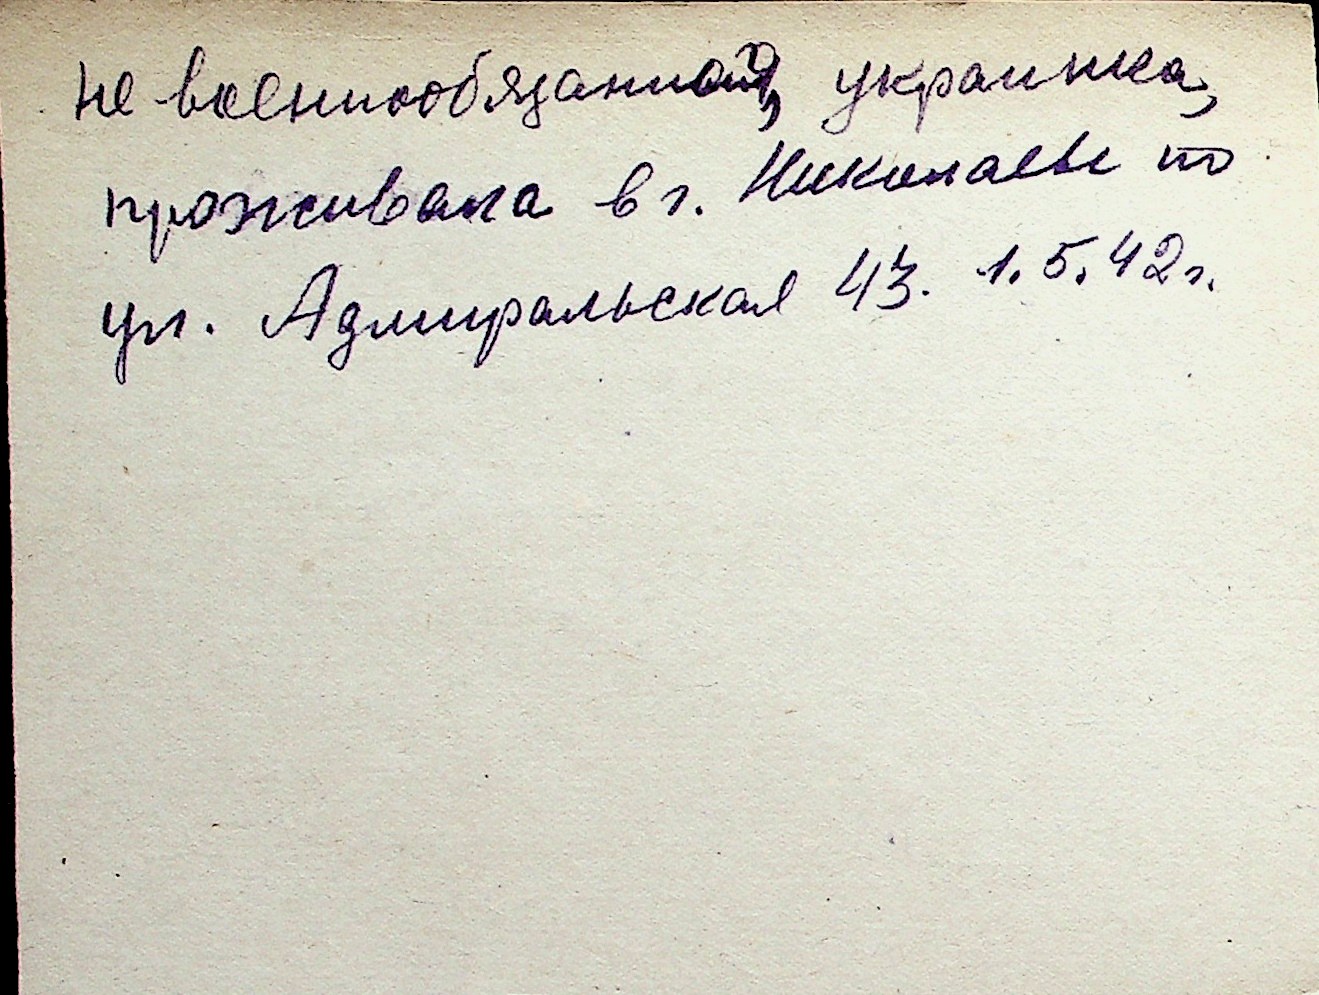 не военнообязанная, украинка,
проживала в г. Николаеве по
ул. Адмиральская 43. 1.5.42г.